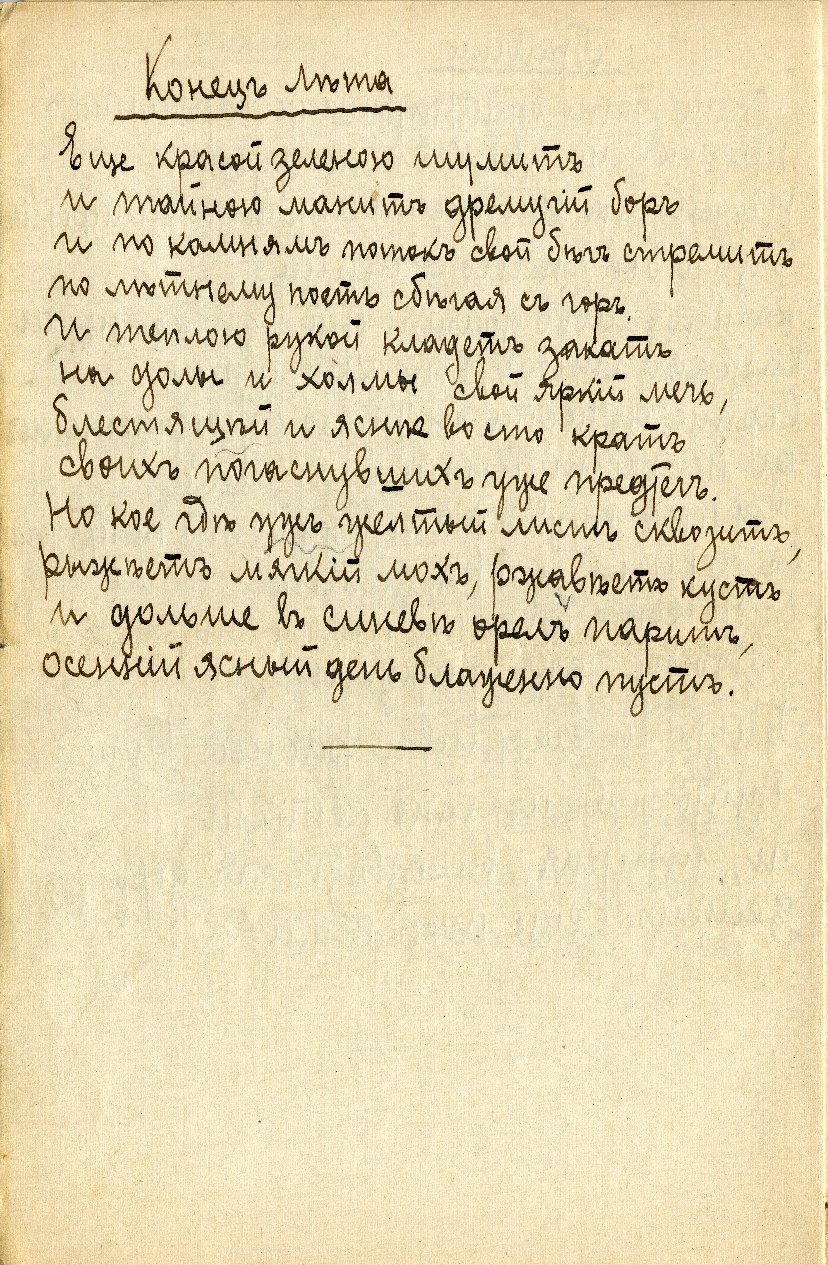 Конецъ лѣта
Еще красой зеленою шумитъ
и тайною манитъ дремучій боръ
и по камнямъ потокъ свой бѣгъ стремитъ
по лѣтнему поетъ сбѣгая съ горъ.
И теплою рукой кладетъ закатъ
на долы и холмы свой яркій мечъ,
блестящѣй и яснѣе во сто кратъ
своихъ погаснувшихъ уже предтеч.
Но кое гдѣ ужъ желтый листъ сквозитъ,
рыжѣетъ мягкій мохъ, ржавѣетъ кустъ
и дольше въ синевѣ орелъ паритъ,
осенній ясный день блаженно пустъ.